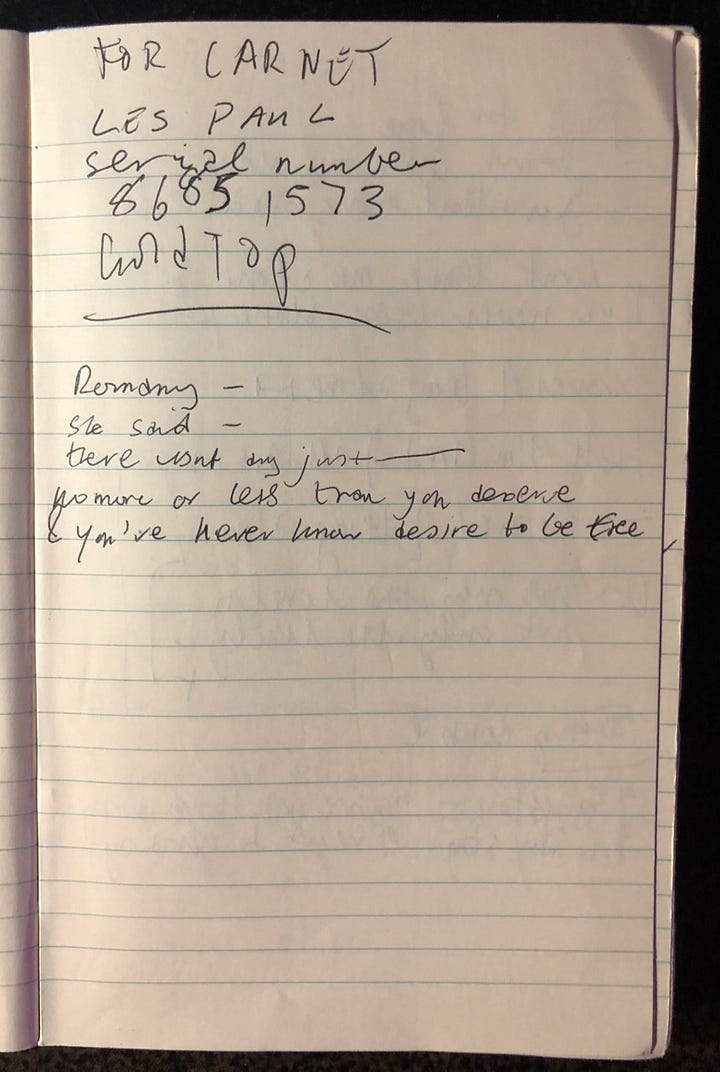 FOR CARNET
LES PAUL
serial number
8685 1573
Gold Top
Romany –
she said –
there wont any just ——
no more or less than you deserve
& you've never know desire to be free